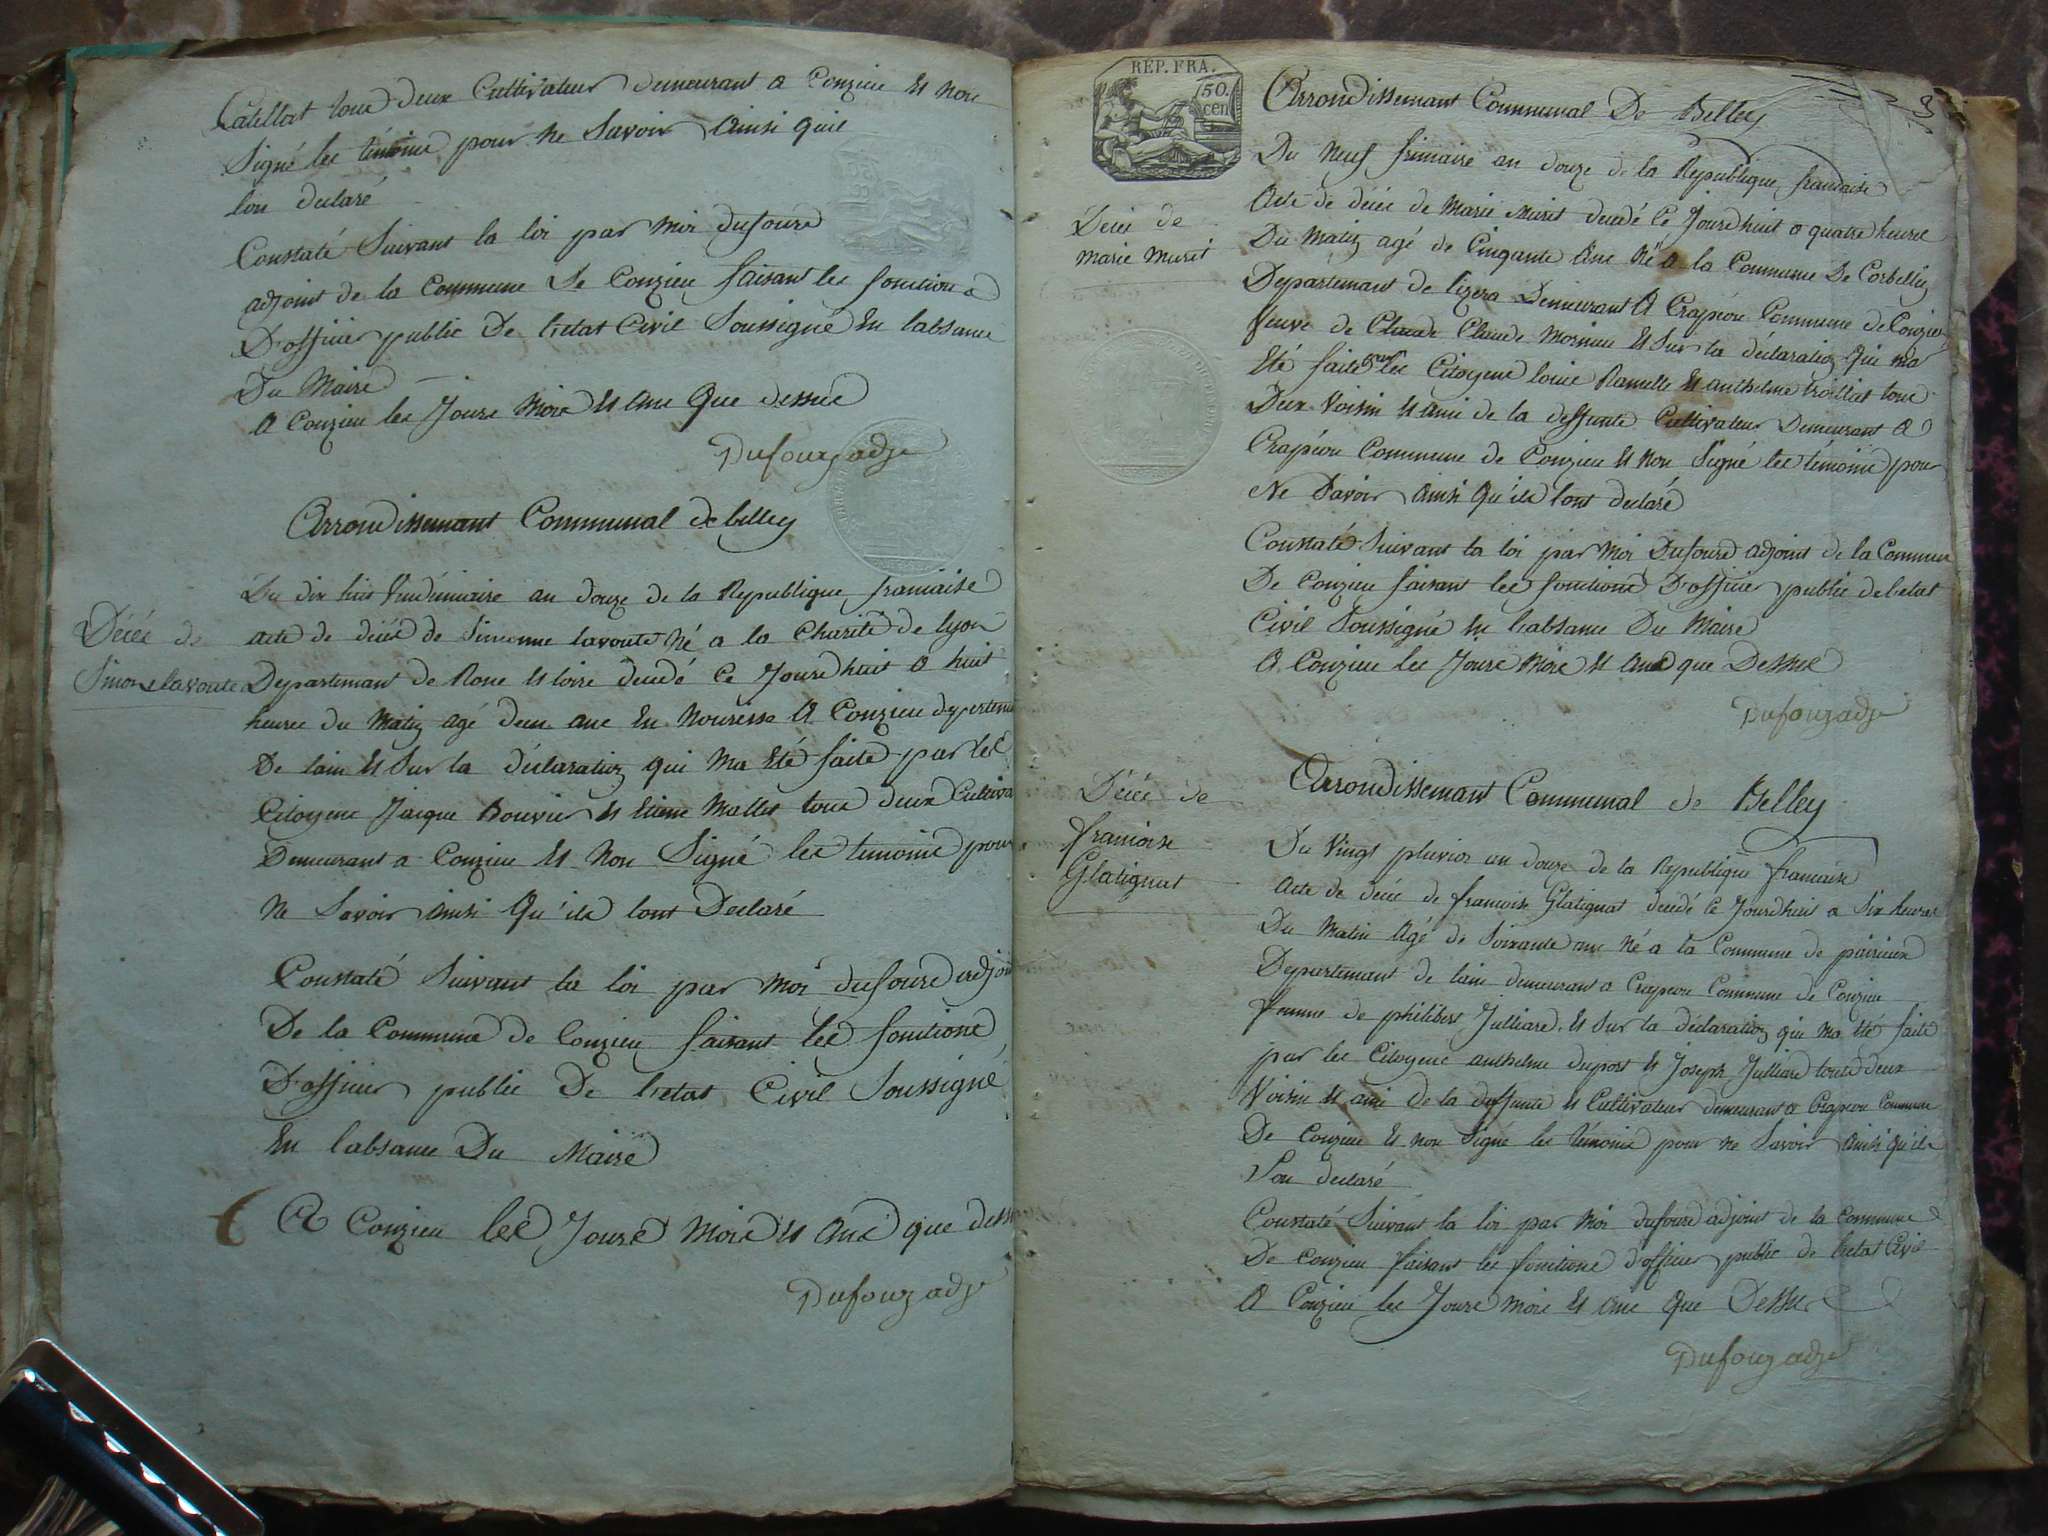 Catellat tous deux Cultivateur demeurant a Conzieu et non
Signé les témoins pour ne Savoir Ainsi quil
lon declaré
Constaté Suivant la loi par moi dufours
adjoint de la Commune de Conzieu faisant les fonctions
D'officier public De Letat Civil Soussigné En labsance
Du Maire
A Conzieu les Jours Mois et Ans Que dessus
Dufour adj
Arrondissemant Communal de belley
Du dix huit Vendémiaire an douze de la Republique francaise
Décés de
Simone lavoute
acte de décés de Simonne lavoute Né a la Charité de lyon
Departemant de Rone et loire decedé Ce Jourdhuit a huit
heures du Matin agé deux ans En Nourisse A Conzieu departem
De lain et Sur la déclaration qui Ma Eté faite par les
Citoyens Jacque Bouvier et Etiene Mallet tous deux Cultiva
Demeurant a Conzieu et Non Signé les temoins pour
Ne Savoir Ainsi Qu'ils lont Declaré
Constaté Suivant la loi par moi dufours adjoin
De la Commune de Conzieu faisant les fonctions
D'officier public De Letat Civil Soussigné
En labsance Du Maire
A Conzieu les Jours Mois et Ans que dess
Dufour adj
REP. FRA.
50.
cen
3
Arrondissemant Communal De Belley
Du Neuf frimaire an douze de la Republique francaise
Décés de
marie Muret
Acte de décés de Marie Muret decedé Ce Jourdhuit a quatre heures
Du Matin agé de Cinquante Ans Né a la Commune De Corbelin
Departemant de lizera Demeurant A Crapéou Commune de Conzieu
feuve de Claude Claude Et Sur la déclaration Qui ma
Eté faite par les Citoyens louis Ramelle et anthelme trolliat tous
Deux Voisin et ami de la deffunte Cultivateur Demeurant a
Crapéou Commune de Conzieu et Non Signé les témoins pour
Ne Savoir Ainsi Qu'ils lont declaré
Constaté Suivant la loi par Moi Dufours adjoint de la Commune
De Conzieu faisant les fonctions D'officier public de letat
Civil Soussigné En Labsance Du Maire
A Conzieu les Jours Mois et Ans que Dessus
Dufour adj
Arrondissemant Communal de Belley
Décés de
francoise
Glatignat
Du Vingt pluvios an douze de la Republique francaise
Acte de décés de francoise Glatignat decedé Ce Jourdhuit a Six heures
Du Matin Agé de Soixante ans Né a la Commune de peirieux
Departemant de lain demeurant a Crapeou Commune de Conzieu
femme de philibert Julliard et Sur la déclaration qui Ma Eté faite
par les Citoyens anthelme duport et Joseph Julliard tous deux
Voisin et ami de la deffunte et Cultivateur demeurant a Crapeou Commune
De Conzieu et non Signé les témoins pour ne Savoir Ainsi qu'ils
lon declaré
Constaté Suivant la loi par Moi dufours adjoint de la Commune
De Conzieu faisant les fonctions d'officier public de letat Civil
A Conzieu les Jours Mois et Ans Que Dessus
Dufour adj